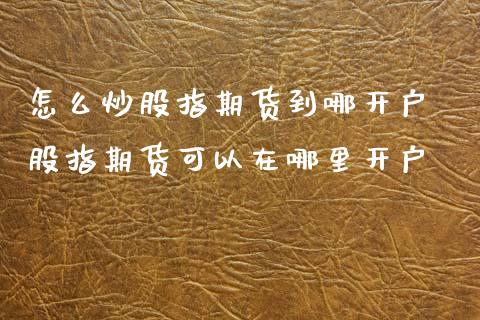 怎么炒股指期货到哪开户
股指期货可以在哪里开户